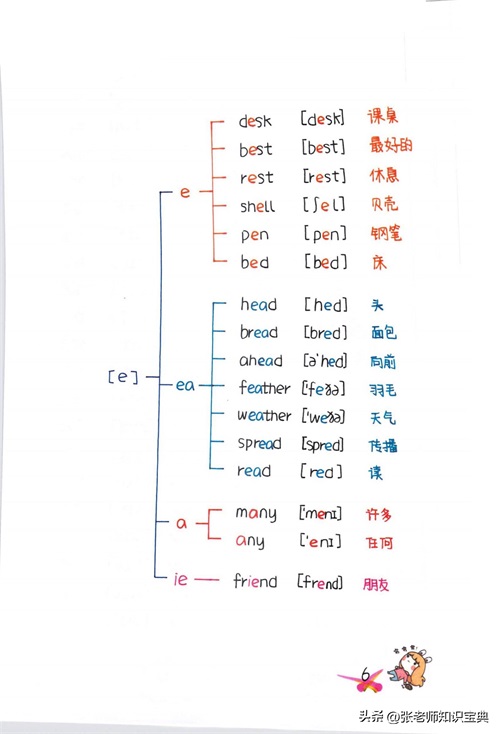 desk [desk] 课桌
best [best] 最好的
e rest [rest] 休息
shell [ʃel] 贝壳
pen [pen] 钢笔
bed [bed] 床
head [hed] 头
bread [bred] 面包
ahead [ə'hed] 向前
[e] ea feather ['feðə] 羽毛
weather ['weðə] 天气
spread [spred] 传播
read [red] 读
many ['menɪ] 许多
a
any ['enɪ] 任何
ie friend [frend] 朋友
6
头条 @张老师知识宝典